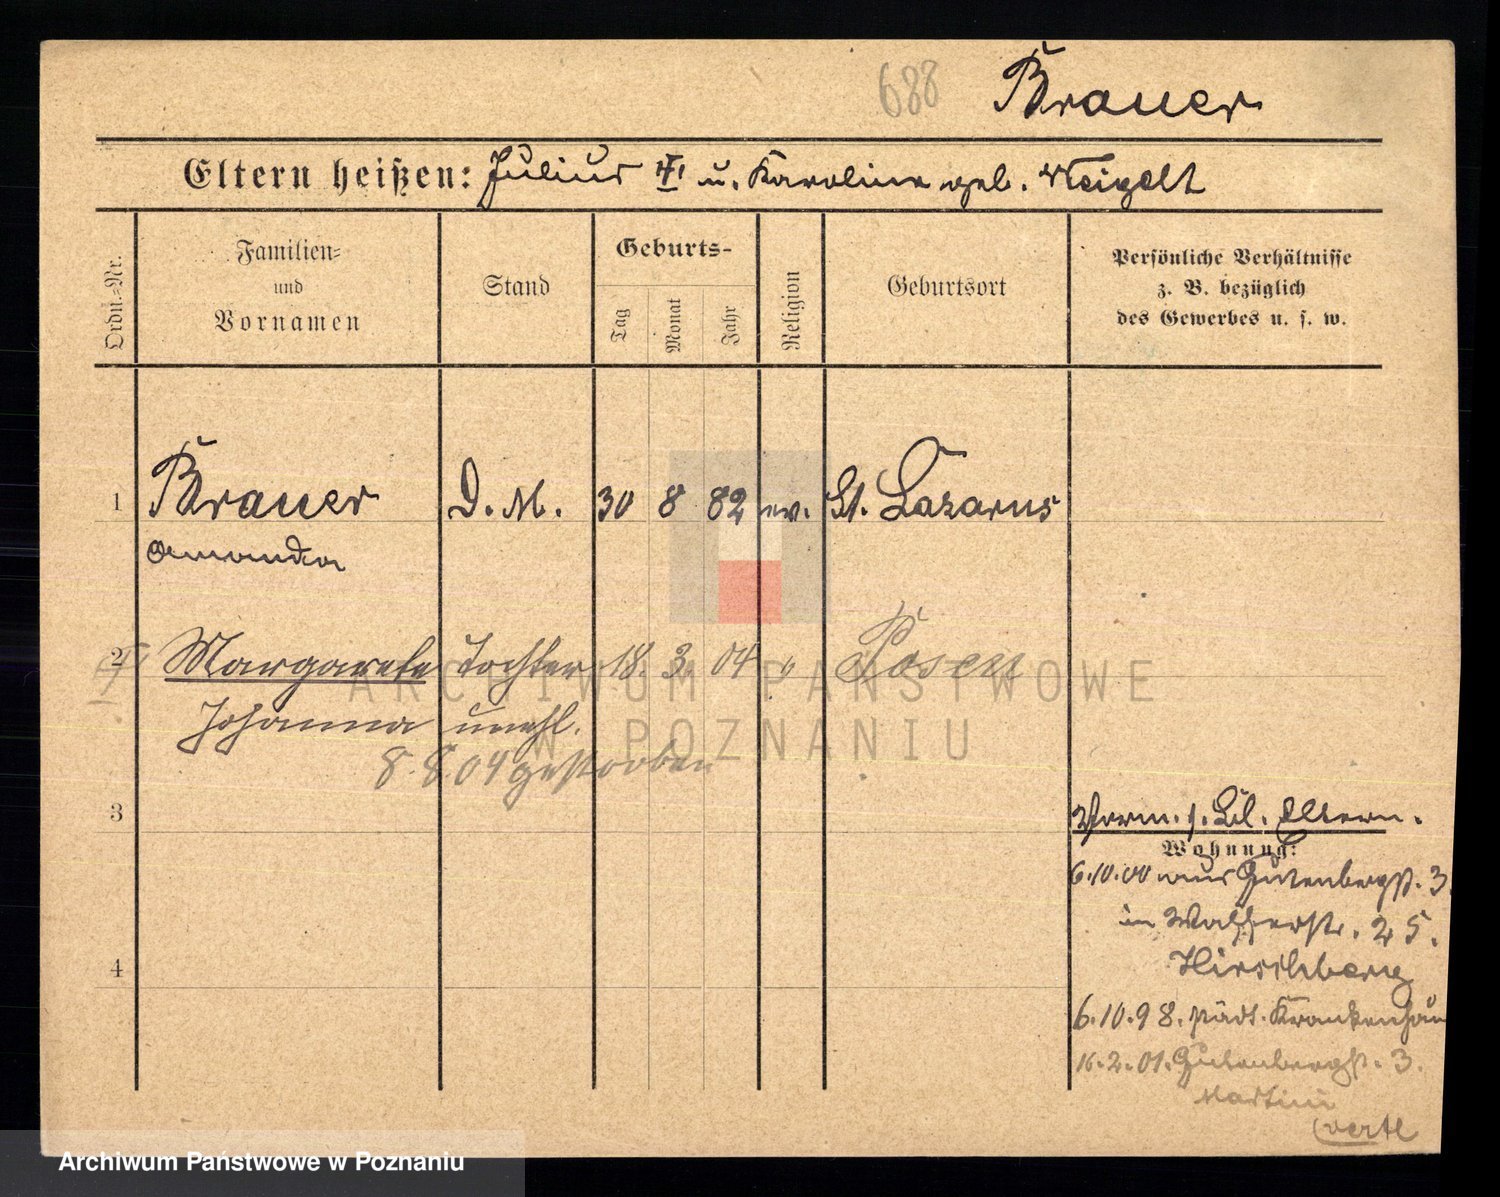 688 Brauer
Eltern heißen: Julius u. Karoline geb. Weigelt
Ordn.-Nr.
Familien-
und
Vornamen
Stand
Geburts-
Tag
Monat
Jahr
Religion
Geburtsort
Persönliche Verhältnisse
z. B. bezüglich
des Gewerbes u. s. w.
1 Brauer D. M. 30 8 82 ev. St. Lazarus
Amanda
2 Margarete Tochter 18. 3. 04 " Posen
Johanna unehl.
8.8.04 gestorben
3
Vorm. s. Bl. Eltern.
Wohnung:
6.10.00 aus Gutenbergst. 3
in Wallerstr. 25.
Hirschberg
4
6.10.98. städt. Krankenhau
16.2.01. Gutenbergst. 3.
Martini
verte
ARCHIWUM PAŃSTWOWE
W POZNANIU
Archiwum Państwowe w Poznaniu